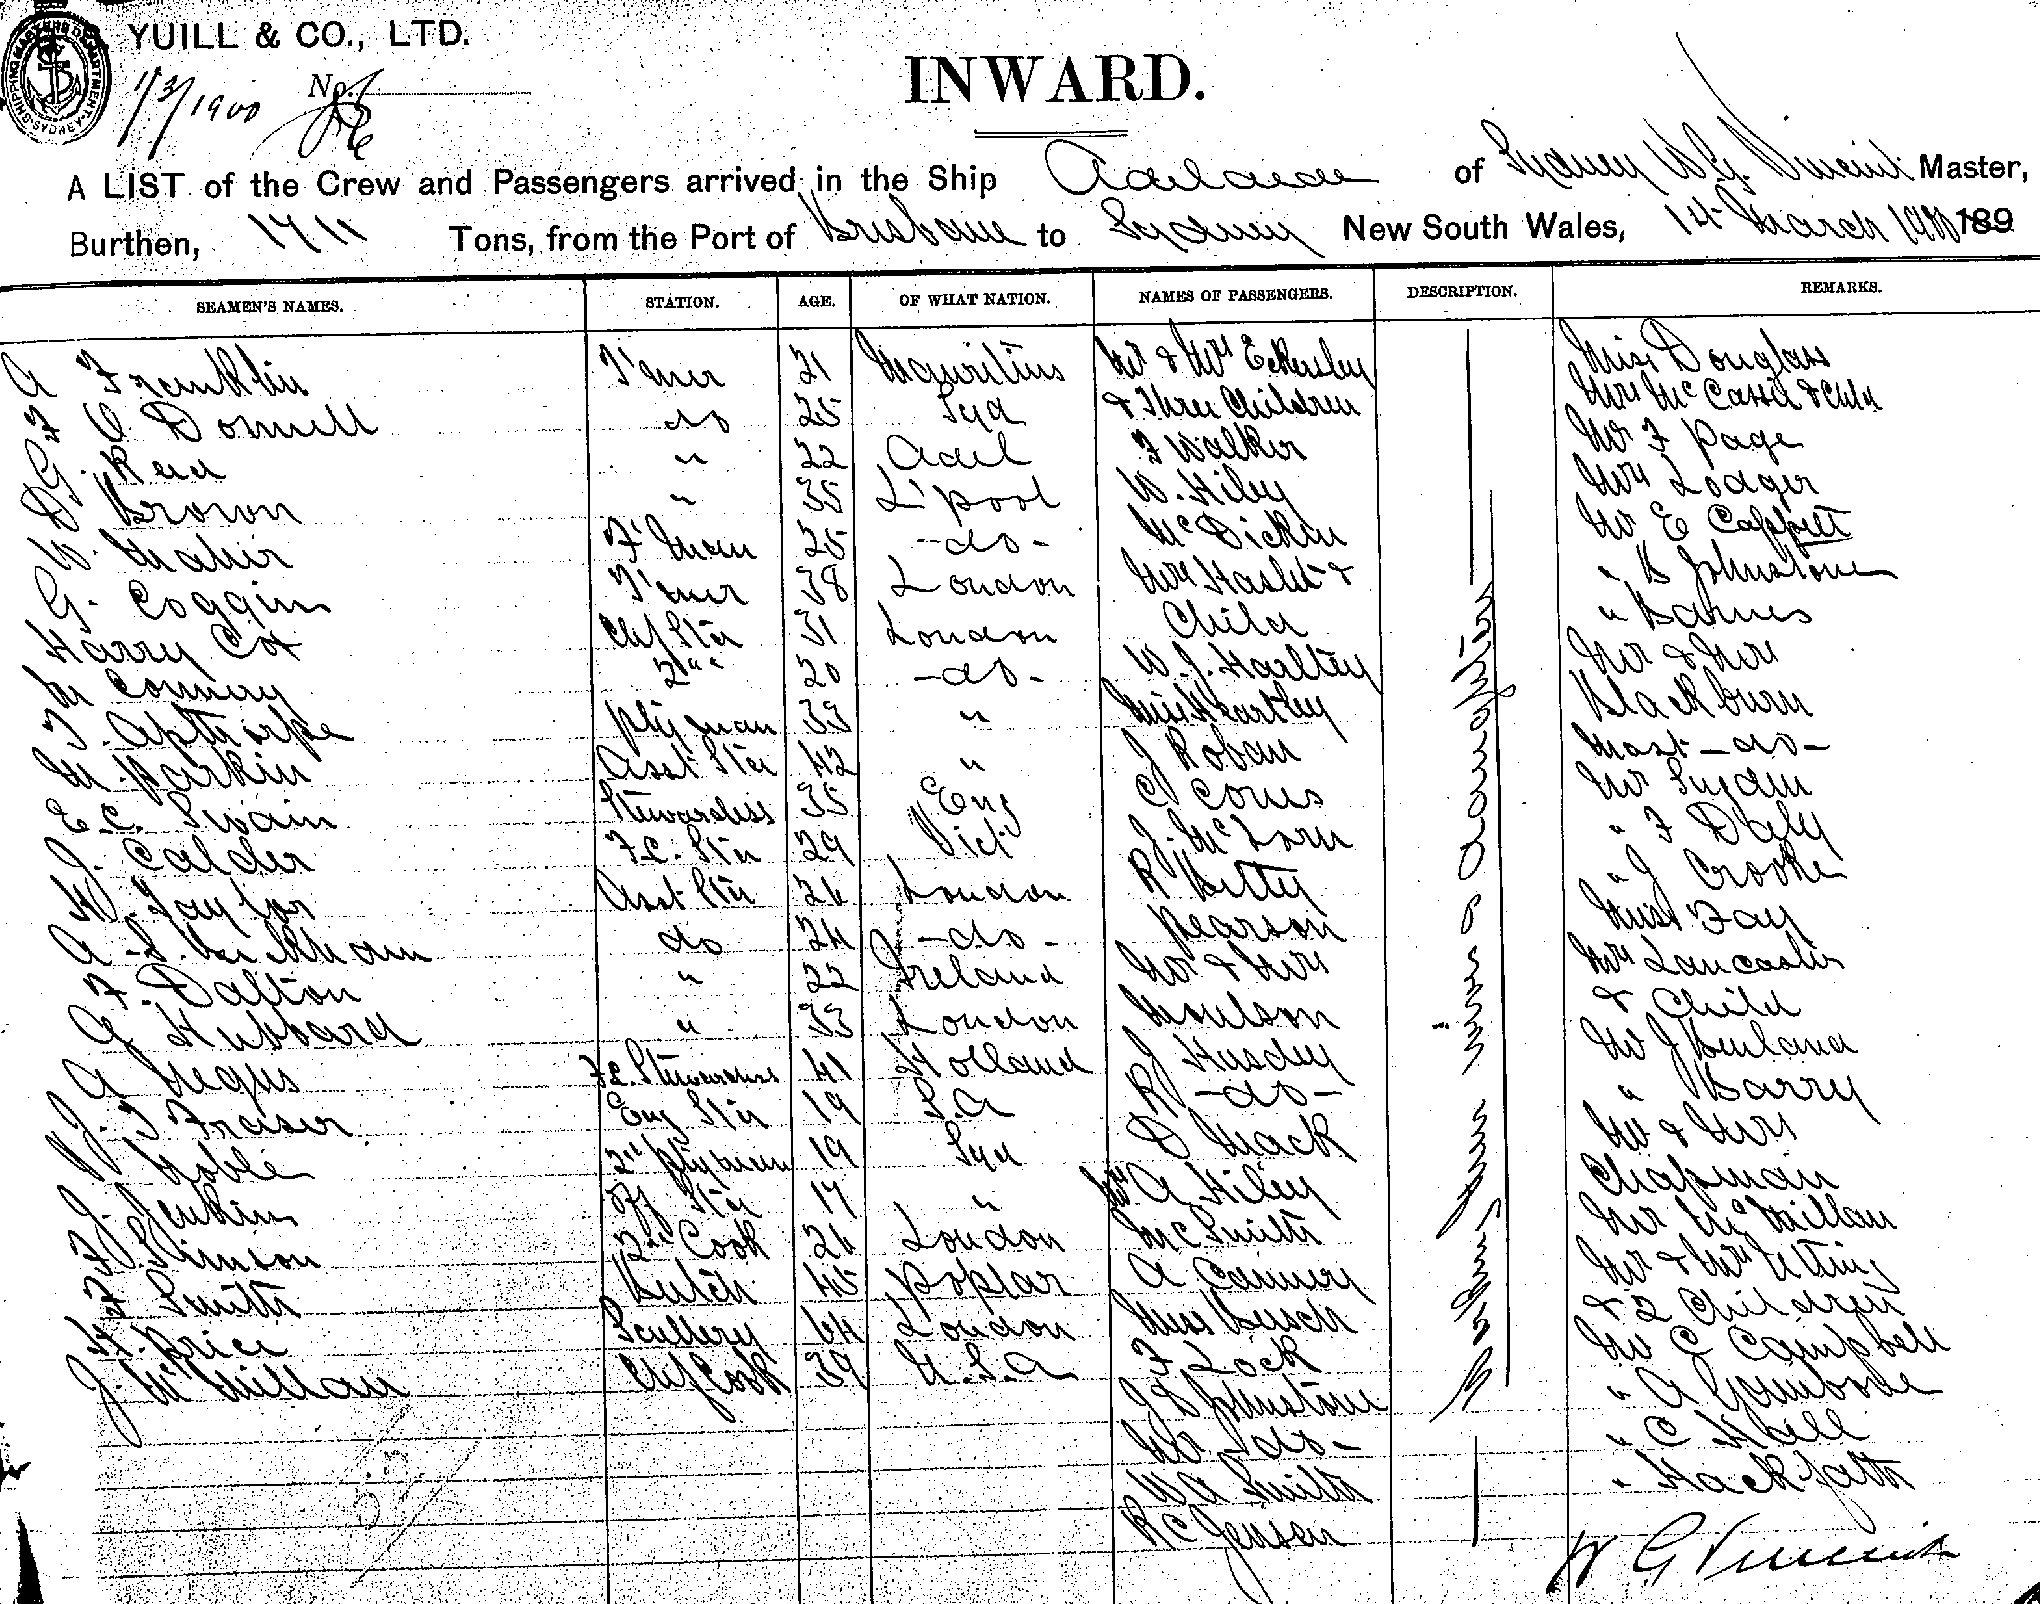 YUILL & CO., LTD.
1/3/1900 No.
INWARD.
A LIST of the Crew and Passengers arrived in the Ship Adelaide of Sydney W G. Vincent Master,
Burthen, 1711 Tons, from the Port of Brisbane to Sydney New South Wales, 1st March 1900 189
SEAMEN'S NAMES. STATION. AGE. OF WHAT NATION. NAMES OF PASSENGERS. DESCRIPTION. REMARKS.
A Franklin T'mer 21 Mauritius Mr & Mrs Eckersley Miss Douglass
F O'Donnell do 25 Syd & Three Children Mrs McCassa & Child
G. Reid " 22 Adel F Walker Mr F Page
D Brown " 35 L'pool W. Hiley Mrs Lodger
W. Maher F'man 25 -do- McDicken Mr E Cappett
G. Coggin T'mer 38 London Mrs Haslet & " B Johnstone
Harry Cox Chf Ster 31 London Child " Barnes
M Conway 2nd " 20 -do- W. J. Hartley Mr & Mrs
T. Apthorpe Ptyman 33 " Miss Hartley Blackburn
M. Parkin Asst Ster 42 " J Roban Mast -do-
E. C. Swain Stewardess 35 Eng C Corus Mr Snyder
J. Calder F.C. Ster 29 Vict J. McLorn " F Daly
W. Taylor Asst Ster 24 London R Bitty " J Crooke
A S. do 24 -do- Pearson Miss Fay
F. Dalton " 22 Ireland Mr & Mrs Mrs Lancaster
G Hubbard " 33 London Moulson & Child
A Negus F.C. Stewardess 41 Holland J Husdey Mr J Burland
J. T Fraser Eng Ster 19 S.A R -do- " Barry
W Noble 2nd Ptyman 19 Syd D Mack Mr & Mrs
J. Jenkins Off Ster 17 " Mrs A Hiley Chapman
F. Stimson 2nd Cook 24 London McSmith Mr McMillan
F Smith Butch 45 Poplar A Cannery Mr & Mrs Utting
H. Price Scullery 64 London Miss Busch & 2 Children
J. McMillan Chf Cook 39 U.S.A F Lock Mr C Campbell
J D Johnstone " A
Mr -do- " C Hall
W A Smith " Hack
R C Jensen
W G Vincent